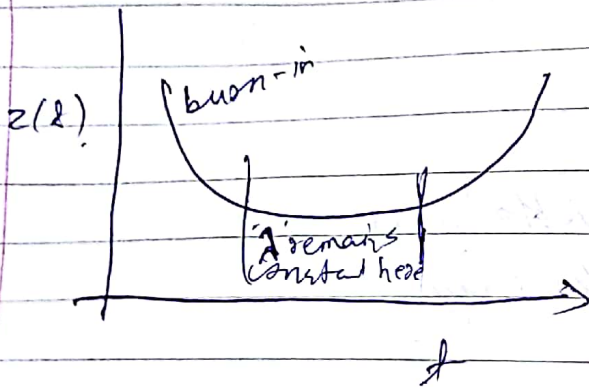 burn-in
z(t)
'λ' remains
constant here
t